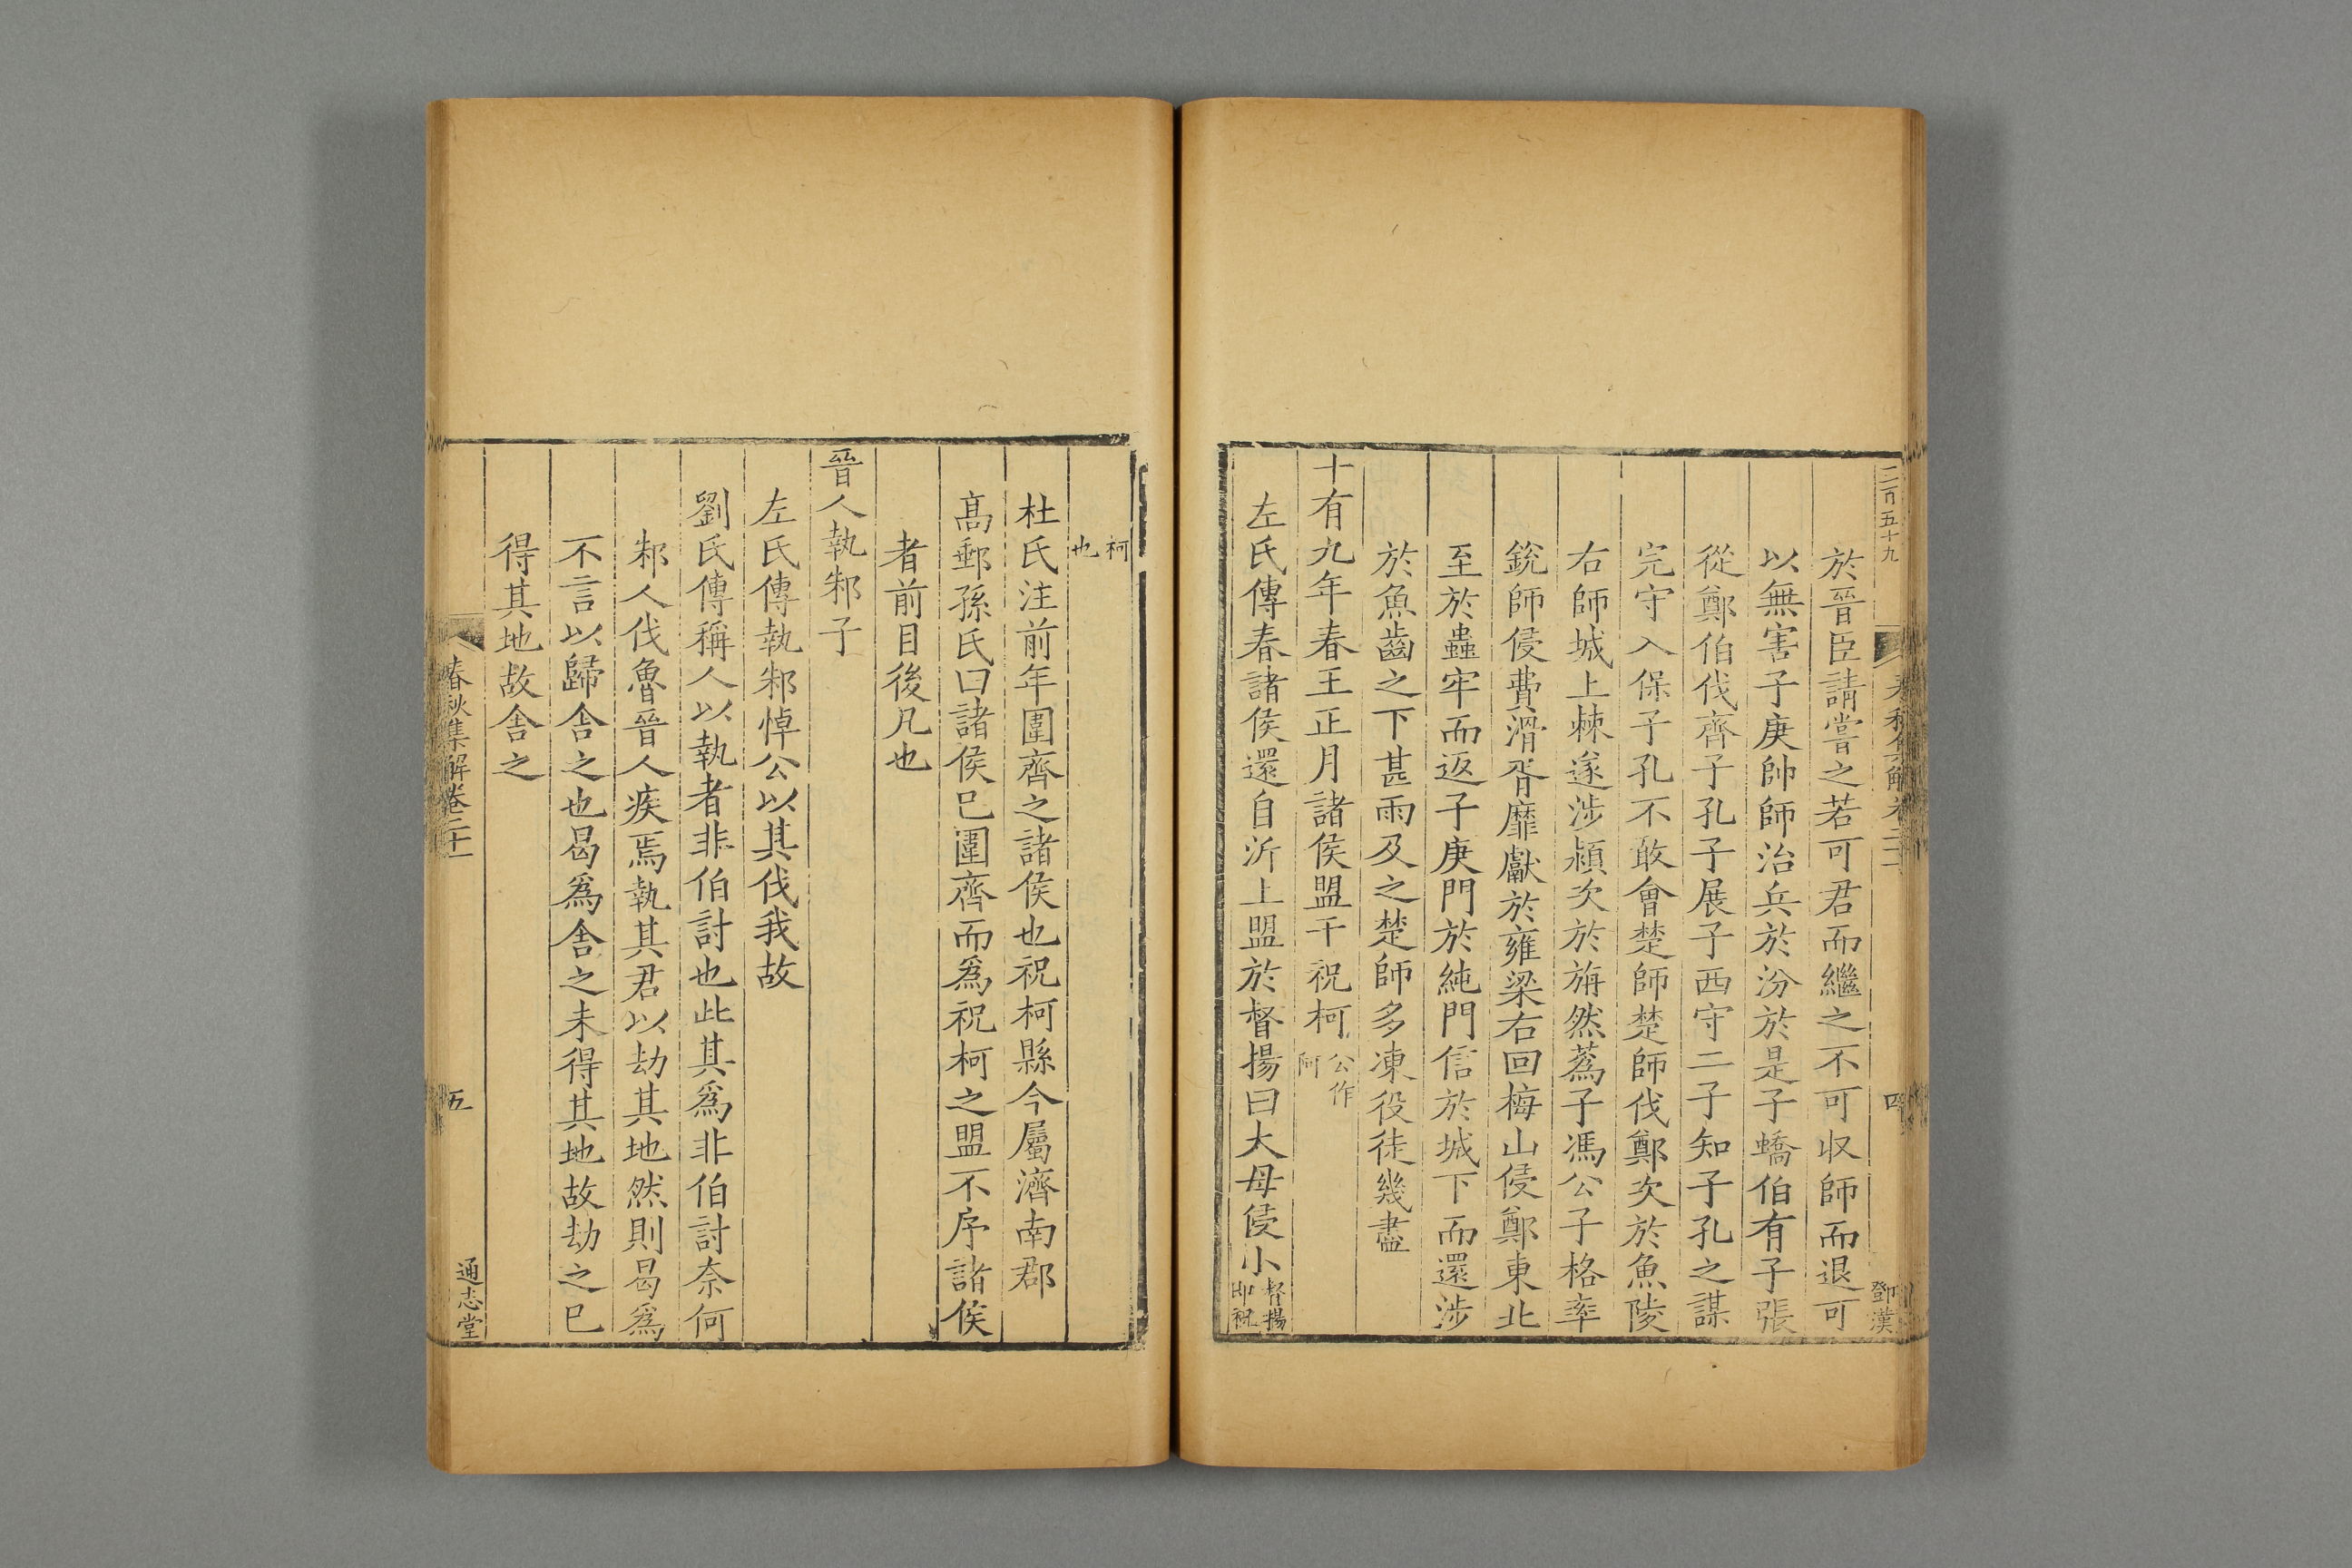 二百五十九
春秋集解卷二十一
四
鄧漢
於晉臣請嘗之若可君而繼之不可収師而退可
以無害子庚帥師治兵於汾於是子蟜伯有子張
從鄭伯伐齊子孔子展子西守二子知子孔之謀
完守入保子孔不敢會楚師楚師伐鄭次於魚陵
右師城上棘遂涉潁次於旃然蒍子馮公子格率
銳師侵費滑胥靡獻於雍梁右回梅山侵鄭東北
至於蟲牢而返子庚門於純門信於城下而還涉
於魚齒之下甚雨及之楚師多凍役徒幾盡
十有九年春王正月諸侯盟于祝柯公作阿
左氏傳春諸侯還自沂上盟於督揚曰大毋侵小督揚即祝
柯也
杜氏注前年圍齊之諸侯也祝柯縣今屬濟南郡
高郵孫氏曰諸侯已圍齊而爲祝柯之盟不序諸侯
者前目後凡也
晉人執邾子
左氏傳執邾悼公以其伐我故
劉氏傳稱人以執者非伯討也此其爲非伯討奈何
邾人伐魯晉人疾焉執其君以劫其地然則曷爲
不言以歸舍之也曷爲舍之未得其地故劫之已
得其地故舍之
春秋集解卷二十一
五
通志堂